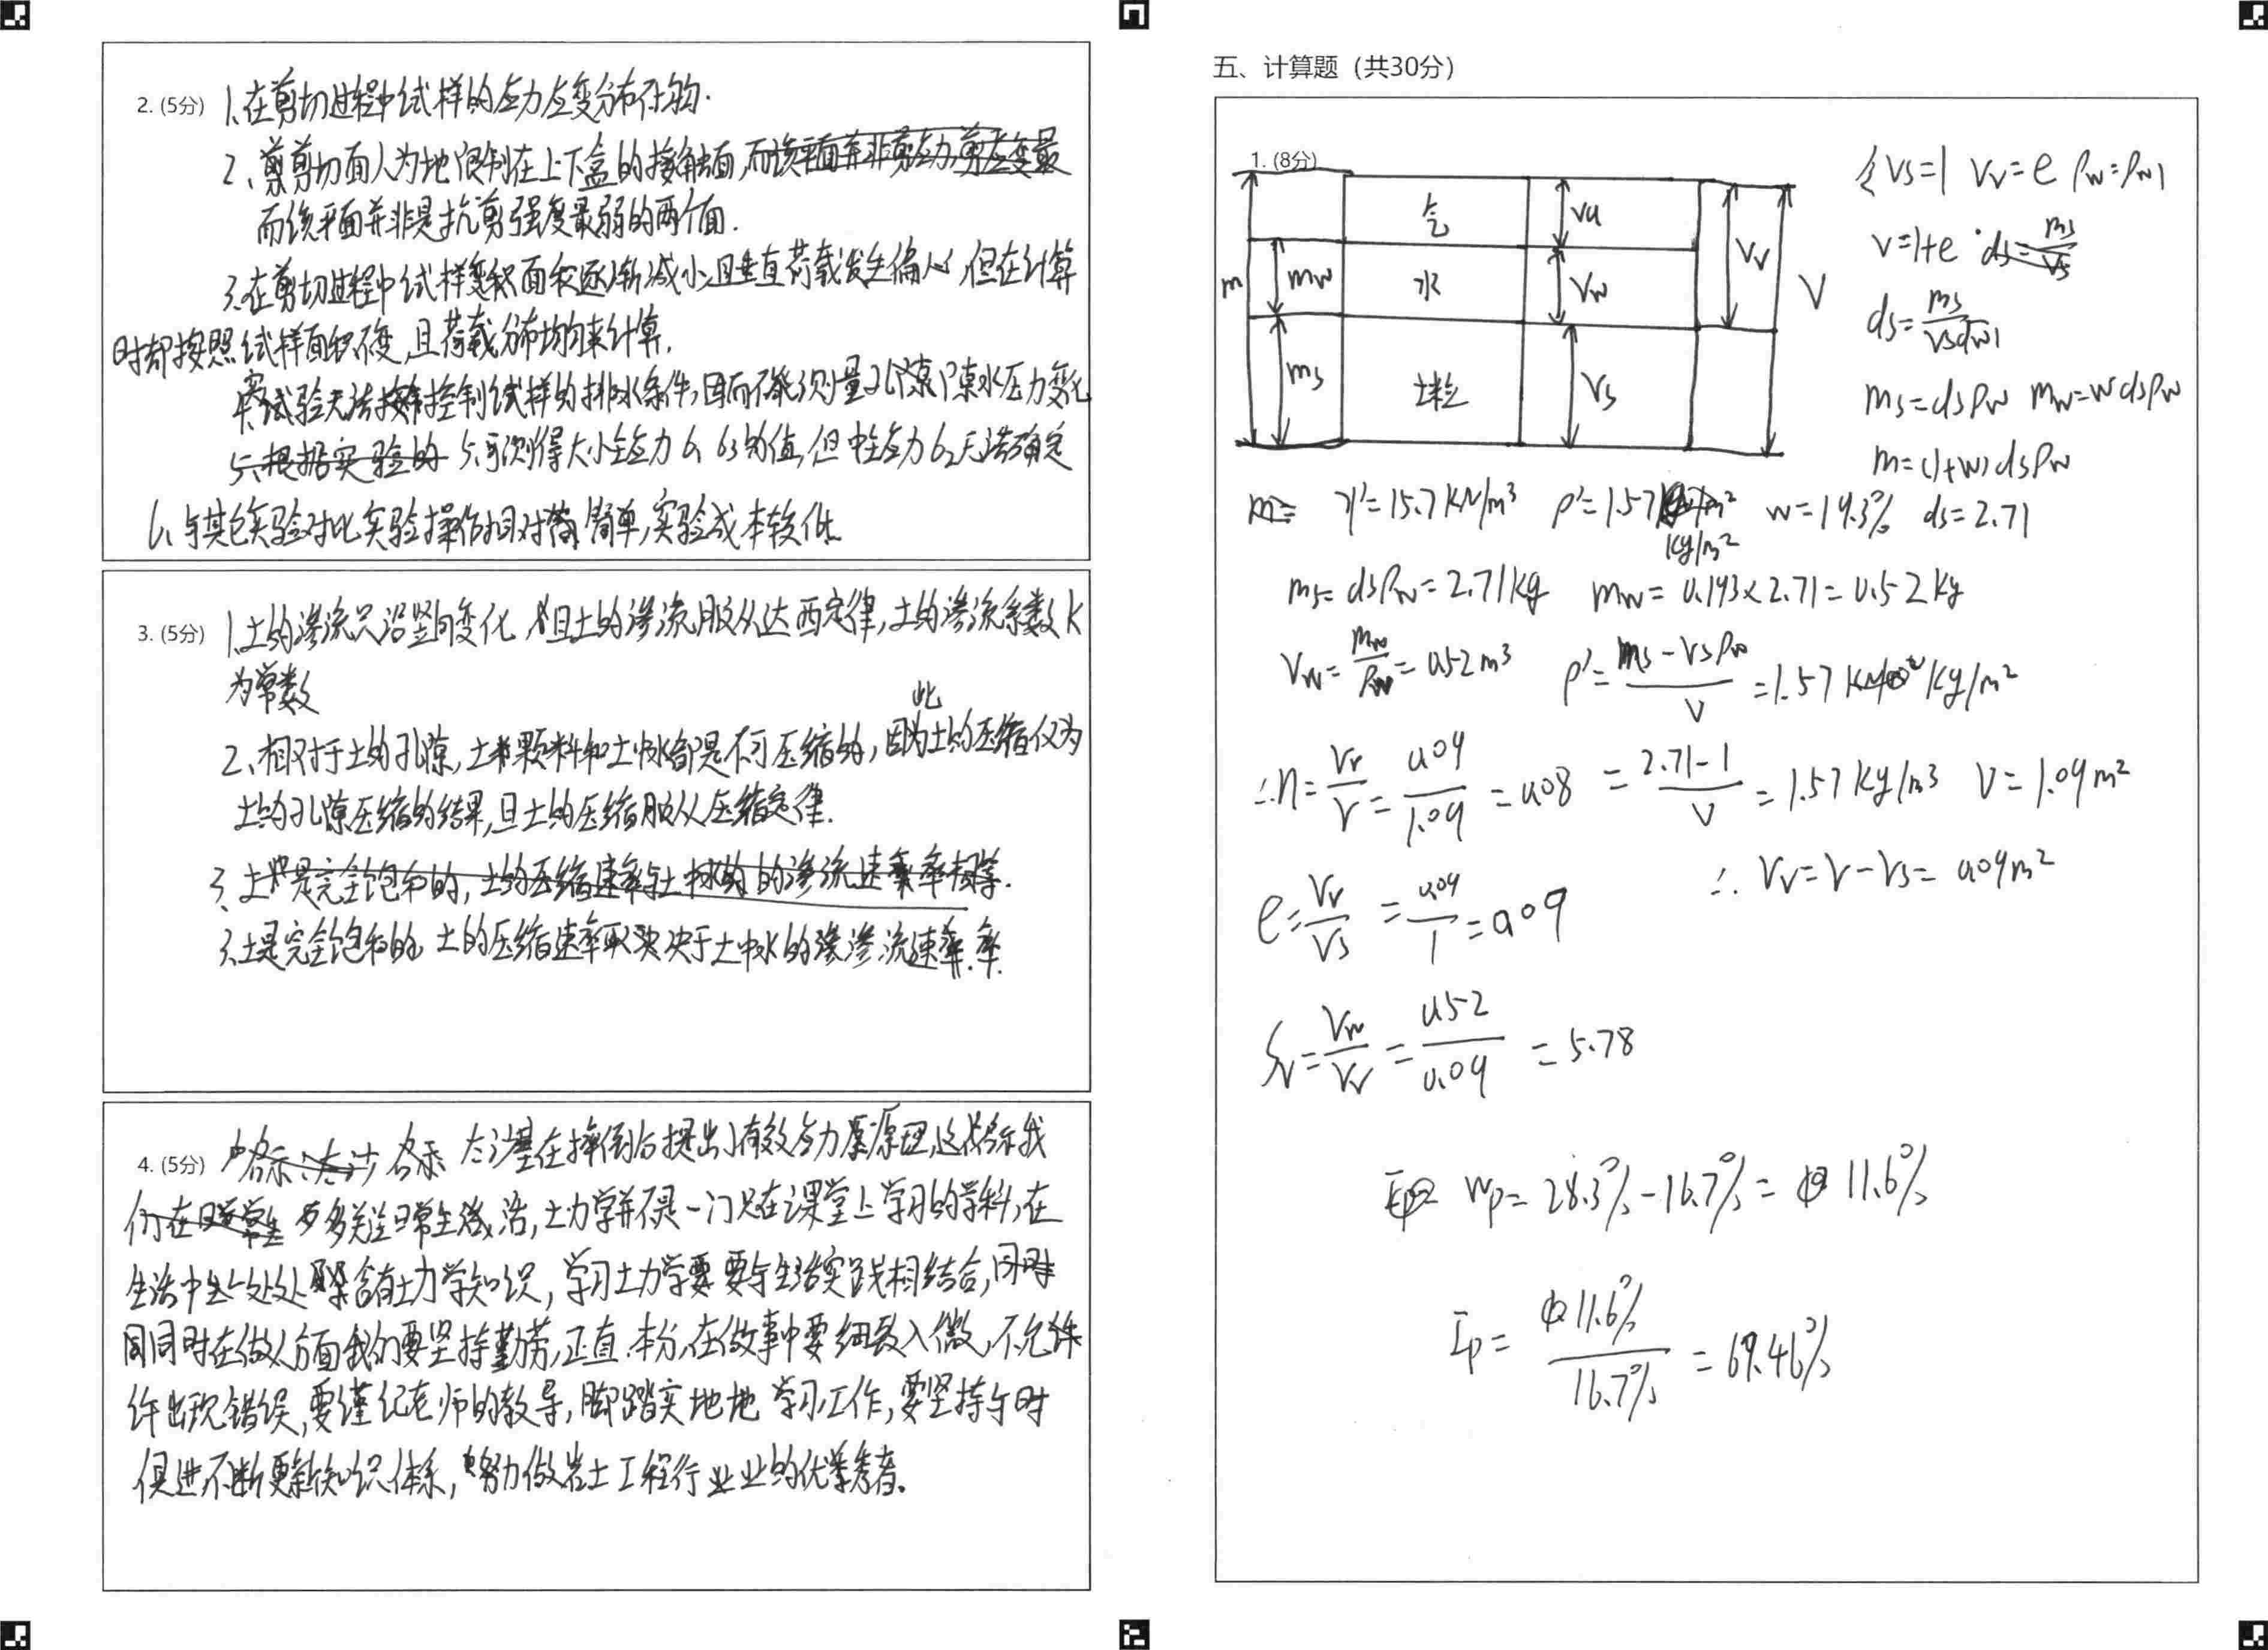 2. (5分) 1.在剪切过程中试样的应力应变分布不均.
2、剪切面人为地限制在上下盒的接触面,
而该平面并非是抗剪强度最弱的两个面.
3.在剪切过程中试样面积逐渐减小,且垂直荷载发生偏心,但在计算
时却按照试样面积不变,且荷载分布均匀来计算.
试验无法控制试样的排水条件,因而不能测量孔隙水压力变化
5.可测得大小主应力σ₁ σ₃的值,但中主应力σ₂无法确定
6、与其它实验对比实验操作相对简单,实验成本较低.
3. (5分) 1.土的渗流只沿竖向变化,且土的渗流服从达西定律,土的渗流系数K
为常数
2、相对于土的孔隙,土颗粒和土中水都是不可压缩的,因此土的压缩仅为
土的孔隙压缩的结果,且土的压缩服从压缩定律.
3.土是完全饱和的 土的压缩速率取决于土中水的渗流速率.
4. (5分) 启示 太沙基在摔倒后提出有效应力原理,这启示我
们 要多关注日常生活,土力学并不是一门只在课堂上学习的学科,在
生活中处处 含有土力学知识,学习土力学要与生活实践相结合,
同时在做人方面我们要坚持勤劳,正直.本分,在做事中要细致入微,不允
许出现错误,要谨记老师的教导,脚踏实地地 学习工作,要坚持与时
俱进不断更新知识体系,努力做岩土工程行业的优秀者.
五、计算题 (共30分)
1. (8分)
气
水
土粒
m
mw
ms
Va
Vw
Vs
Vv
V
令Vs=1 Vv=e ρw=ρw1
V=1+e
ds=ms/Vsρw1
ms=dsρw mw=wdsρw
m=(1+w)dsρw
γ'=15.7KN/m³ ρ'=1.57 kg/m² w=19.3% ds=2.71
ms=dsρw=2.71kg mw=0.193×2.71=0.52kg
Vw=mw/ρw=0.52m³ ρ'=ms-Vsρw/V=1.57 Kg/m²
∴n=Vv/V=0.09/1.09=0.08 =2.71-1/V=1.57kg/m³ V=1.09m²
∴Vv=V-Vs=0.09m²
e=Vv/Vs=0.09/1=0.09
Sr=Vw/Vv=0.52/0.09=5.78
wp=28.3%-16.7%=11.6%
Ip=11.6%/16.7%=69.46%